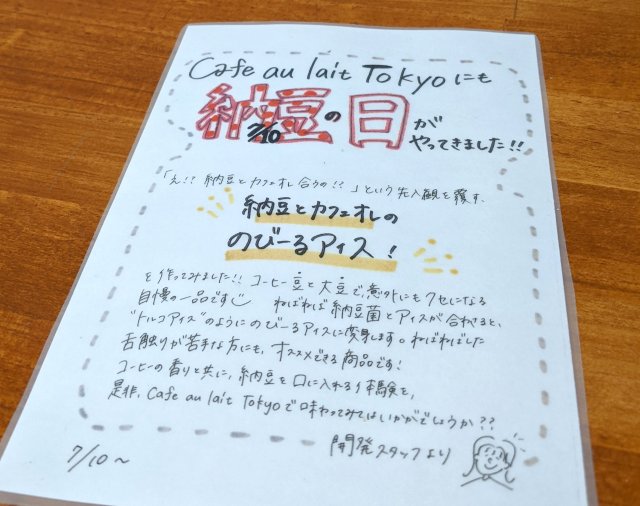 Cafe au lait Tokyo にも
納豆の日が
7/10
やってきました!!
「え!? 納豆とカフェオレ合うの!?」という先入観を覆す、
納豆とカフェオレの
のびーるアイス!
を作ってみました!! コーヒー豆と大豆で、意外にもクセになる
自慢の一品です ねばねば納豆菌とアイスが合わさると、
"トルコアイス"のようにのびーるアイスに変身します。ねばねばした
舌触りが苦手な方にも、オススメできる商品です!
コーヒーの香りと共に、納豆を口に入れる体験を、
是非、Cafe au lait Tokyoで味わってみてはいかがでしょうか??
開発スタッフより
7/10～